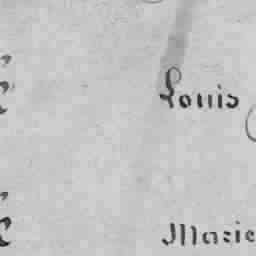 Louis
Marie